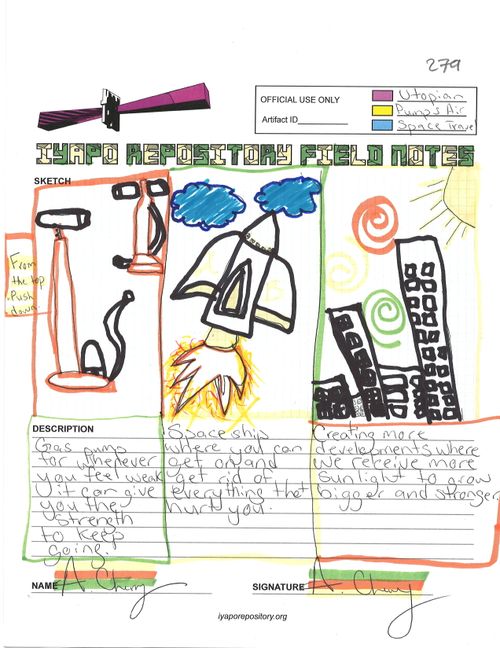 279
OFFICIAL USE ONLY
Artifact ID
Utopian
Pump's Air
Space Travel
IYAPO REPOSITORY FIELD NOTES
SKETCH
From
the top
Push
down.
DESCRIPTION
Gas pump
for whenever
you feel weak
it can give
you the
strength
to keep
going.
Space ship
where you can
get on and
get rid of
everything that
hurt you.
Creating more
developments where
we receive more
sunlight to grow
bigger and stronger.
NAME A. Cherry
SIGNATURE A. Cherry
iyaporepository.org